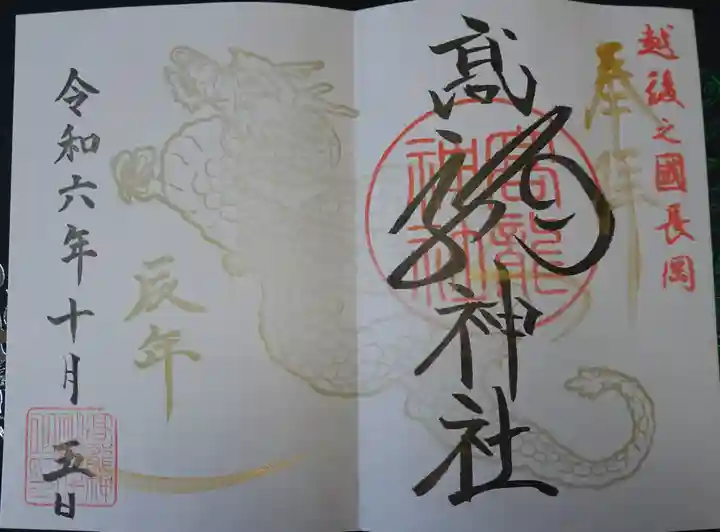 越後之國長岡
奉拝
高龍神社
高龍神社
辰年
令和六年十月五日